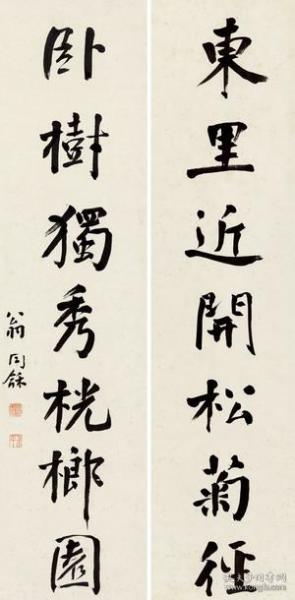 東里近開松菊徑
卧樹獨秀桄榔園
翁同龢